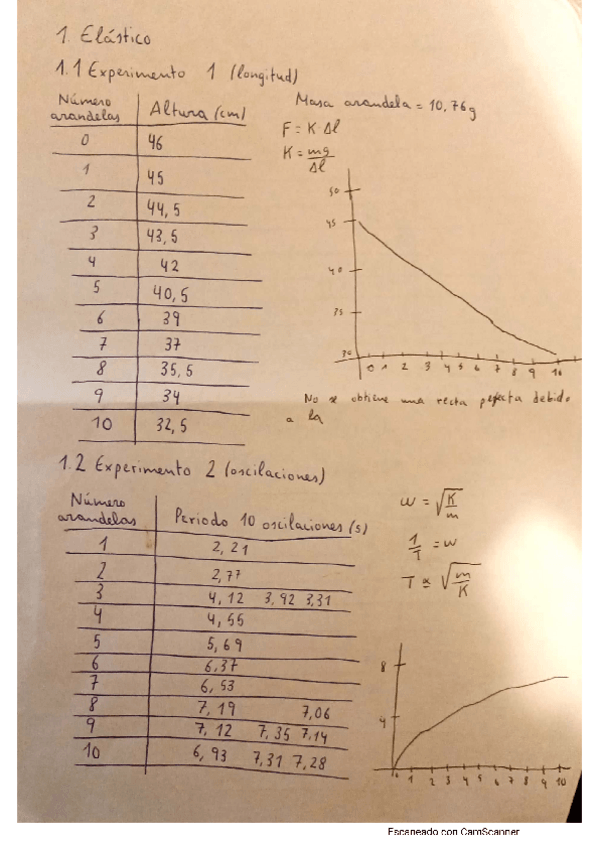 1. Elástico
1.1 Experimento 1 (longitud)
Número arandelas Altura (cm)
0 46
1 45
2 44,5
3 43,5
4 42
5 40,5
6 39
7 37
8 35,5
9 34
10 32,5
Masa arandela = 10,76g
F = K·Δl
K = mg/Δl
50
45
40
35
30
0 1 2 3 4 5 6 7 8 9 10
No se obtiene una recta perfecta debido
a la
1.2 Experimento 2 (oscilaciones)
Número arandelas Periodo 10 oscilaciones (s)
1 2,21
2 2,77
3 4,12 3,92 3,31
4 4,55
5 5,69
6 6,37
7 6,53
8 7,19 7,06
9 7,12 7,35 7,14
10 6,93 7,31 7,28
ω = √K/m
1/T = ω
T ≃ √m/K
8
4
1 2 3 4 5 6 7 8 9 10
Escaneado con CamScanner